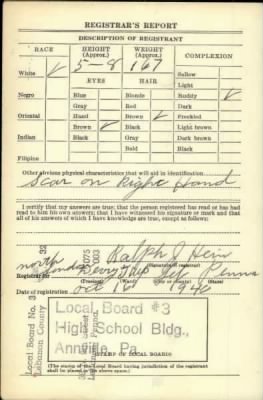 REGISTRAR'S REPORT
DESCRIPTION OF REGISTRANT
RACE
HEIGHT (Approx.)
WEIGHT (Approx.)
COMPLEXION
White ✓
5-8
167
Sallow
EYES
HAIR
Light
Negro
Blue
Blonde
Ruddy ✓
Gray
Red
Dark
Oriental
Hazel
Brown ✓
Freckled
Brown ✓
Black
Light brown
Indian
Black
Gray
Dark brown
Bald
Black
Filipino
Other obvious physical characteristics that will aid in identification
Scar on Right Hand
I certify that my answers are true; that the person registered has read or has had
read to him his own answers; that I have witnessed his signature or mark and that
all of his answers of which I have knowledge are true, except as follows:
Ralph J Hein
Registrar for
north
Penna
(Precinct)
(Ward)
(State)
Date of registration Oct 16 1940
Local Board No. 3
Lebanon County
Local Board #3
High School Bldg.,
Annville, Pa.
STAMP OF LOCAL BOARD
(The stamp of the Local Board having jurisdiction of the registrant
shall be placed in the above space.)